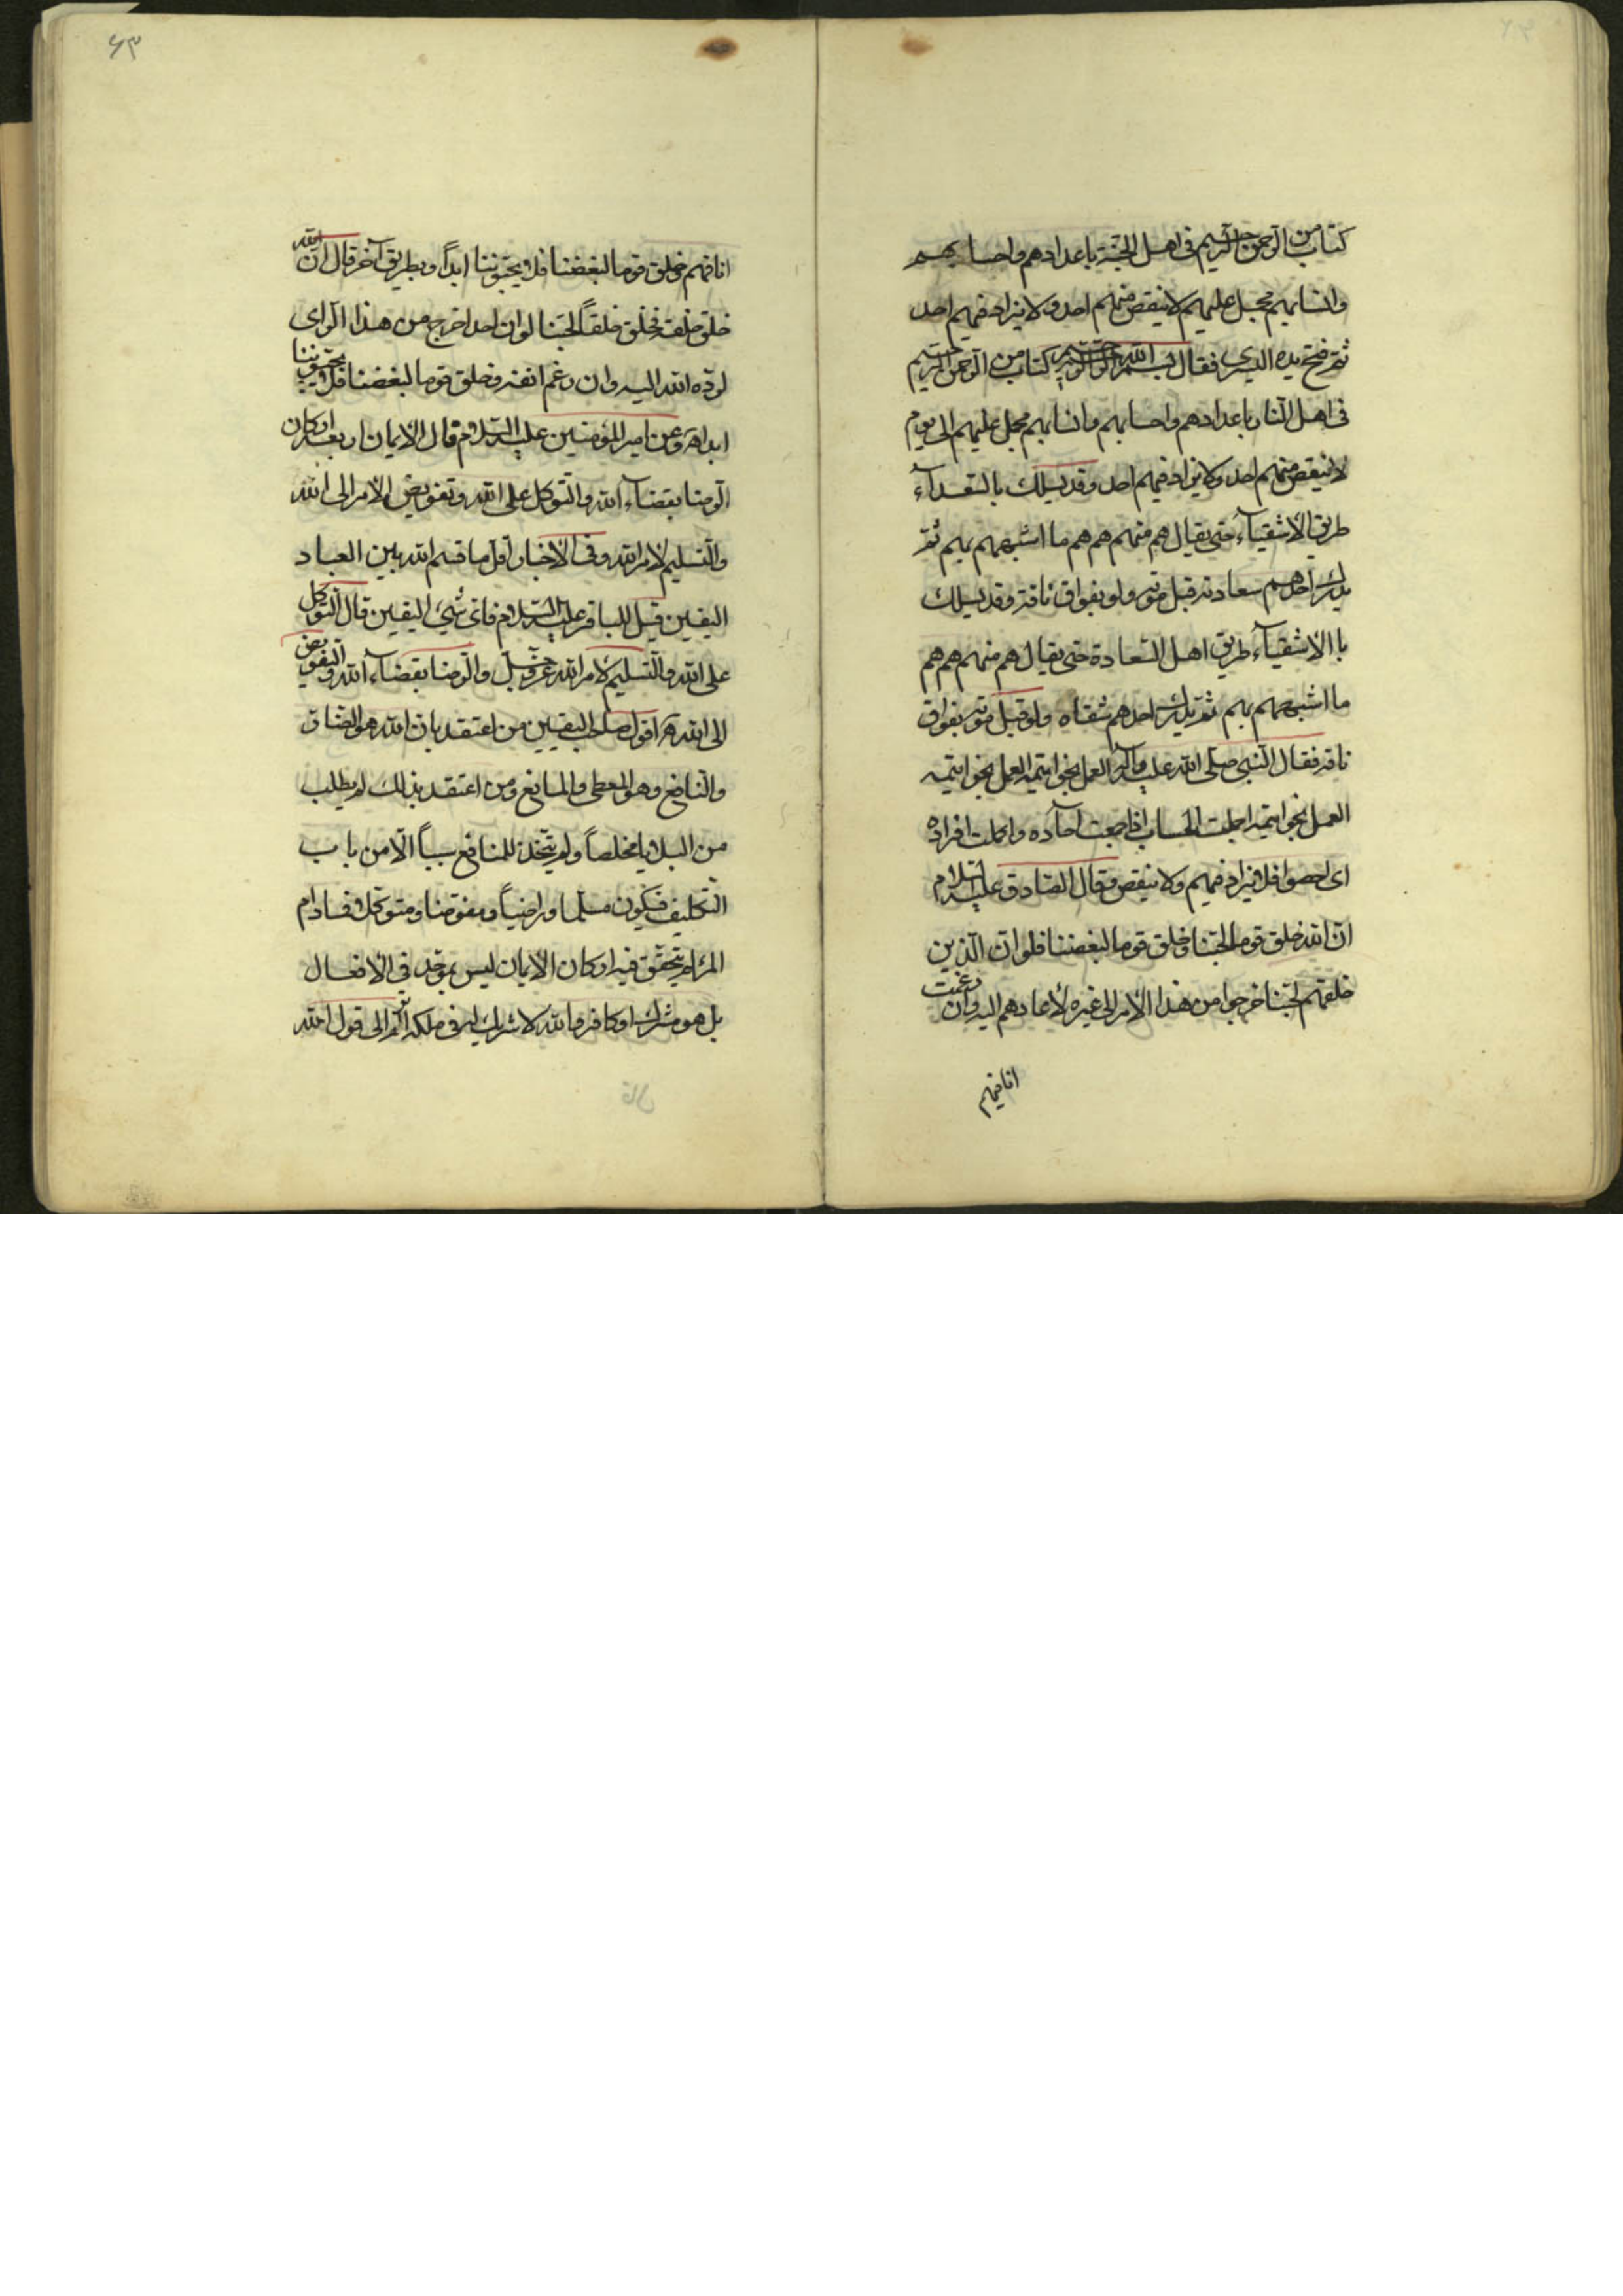 كتاب من الرحمن الرحيم فى اهل الجنة باعدادهم واحسابهم
وانسابهم مجمل عليهم لا ينقص منهم احد ولا يزاد فيهم احد
ثم فتح يده اليسرى فقال بسم الله الرحمن الرحيم كتاب من الرحمن الرحيم
فى اهل النار باعدادهم واحسابهم وانسابهم مجمل عليهم الى يوم
لا ينقص منهم احد ولا يزاد فيهم احد وقد يسلك بالسعدآء
طريق الاشقيآء حتى يقال هم منهم هم هم ما اشبههم بهم ثم
يدرك احدهم سعادته قبل موته ولو بفواق ناقة وقد يسلك
باالاشقيآء طريق اهل السعادة حتى يقال هم منهم هم هم
ما اشبههم بهم ثم يدرك احدهم شقاه ولو قبل موته بفواق
ناقه فقال النبى صلى الله عليه وآله العمل بخواتيمه العمل بخواتيمه
العمل بخواتيمه اجملت الحساب اذا جمعت آحاده واكملت افراده
اى احصوا فلا يزاد فيهم ولا ينقص وقال الصادق عليه السلام
ان الله خلق قوما لحبنا وخلق قوما لبغضنا فلو ان الذين
خلقهم لحبنا خرجوا من هذا الامر الى غيره لأعادهم اليه وان رغمت
انافهم
٦٣
انافهم وخلق قوما لبغضنا فلا يحبوننا ابداً وبطريق آخر قال ان الله
خلق خلقه فخلق خلقاً لحبنا لو ان احدا خرج من هذا الراى
لرده الله اليه وان رغم انفه وخلق قوما لبغضنا فلا يحبوننا
ابدا ه وعن امير المؤمنين عليه السلام قال الايمان اربعة اركان
الرضا بقضآء الله والتوكل على الله وتفويض الامر الى الله
والتسليم لامر الله وفى الاخبار اقل ما قسم الله بين العباد
اليقين قيل للباقر عليه السلام فاى شىء اليقين قال التوكل
على الله والتسليم لامر الله عز وجل والرضا بقضآء الله والتفويض
الى الله ه اقول صاحب اليقين من اعتقد بان الله هو الضار
والنافع وهو المعطى والمانع ومن اعتقد بذلك لم يطلب
من البلايا مخلصاً ولم يتخذ للمنافع سبباً الا من باب
التكليف فيكون مسلما وراضياً ومفوضا ومتوكلا فمادام
المرء لم يتحقق فيه اركان الايمان ليس بموحد فى الافعال
بل هو مشرك او كافر والله لا شريك له فى ملكه الم تر الى قول الله
قال